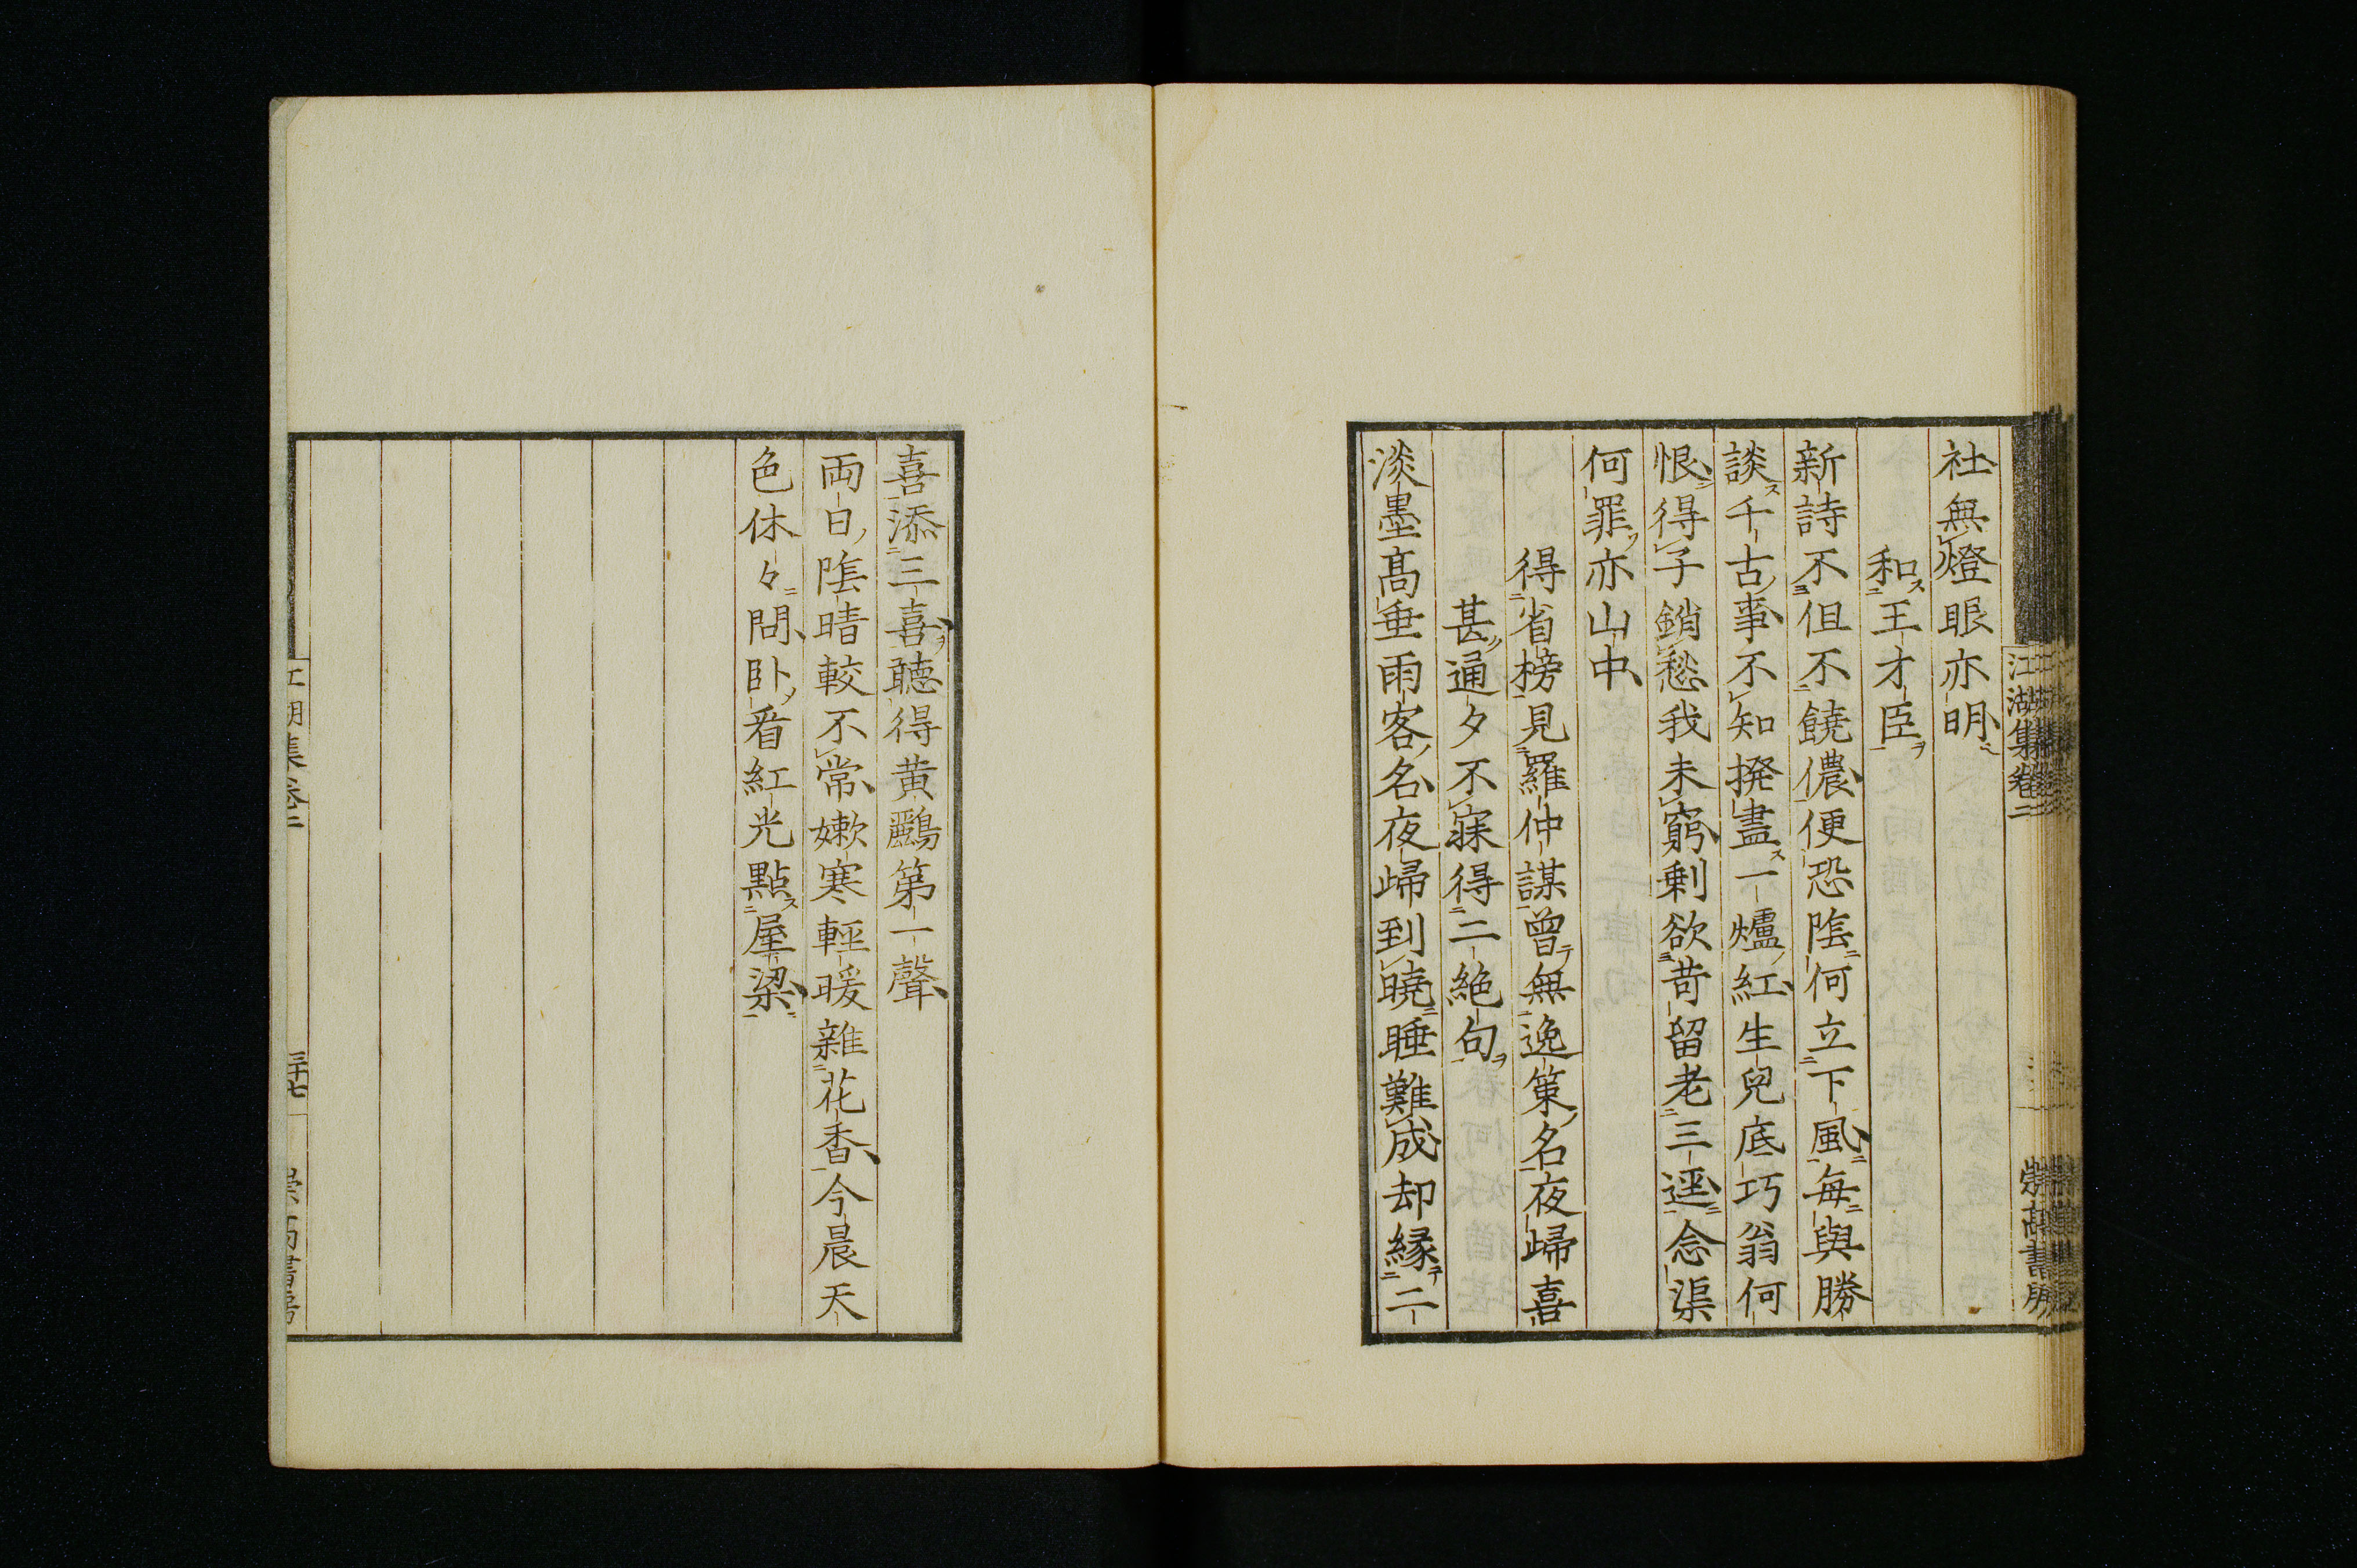 社無燈眼亦明
和王才臣
新詩不但不饒儂便恐陰何立下風每與勝
談千古事不知撥盡一爐紅生兒底巧翁何
恨得子銷愁我未窮剩欲苛留老三逕念渠
何罪亦山中
得省榜見羅仲謀曾無逸策名夜歸喜
甚通夕不寐得二絶句
淡墨髙垂雨客名夜歸到曉睡難成却縁二
江湖集卷二
喜添三喜聽得黄鸝第一聲
両日陰晴較不常嫰寒輕暖雜花香今晨天
色休々問卧看紅光點屋梁
江湖集卷二
三十七
崇高書房